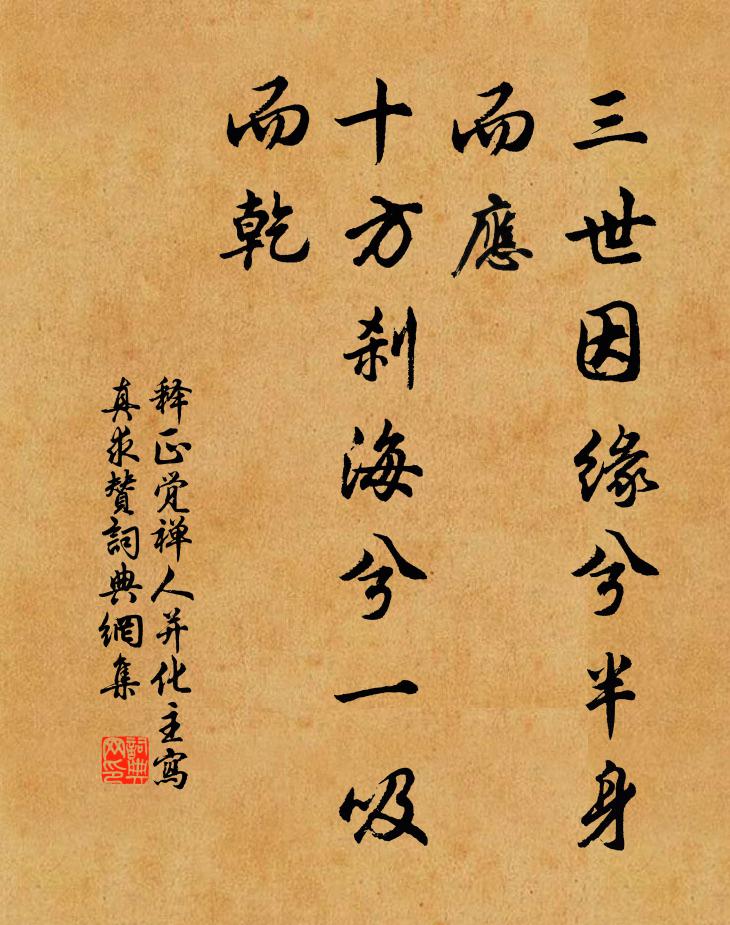 三世因緣兮半身
而應
十方刹海兮一吸
而乾
释正觉禅人并化主寫
真求赞詞典網集
詞典
网印